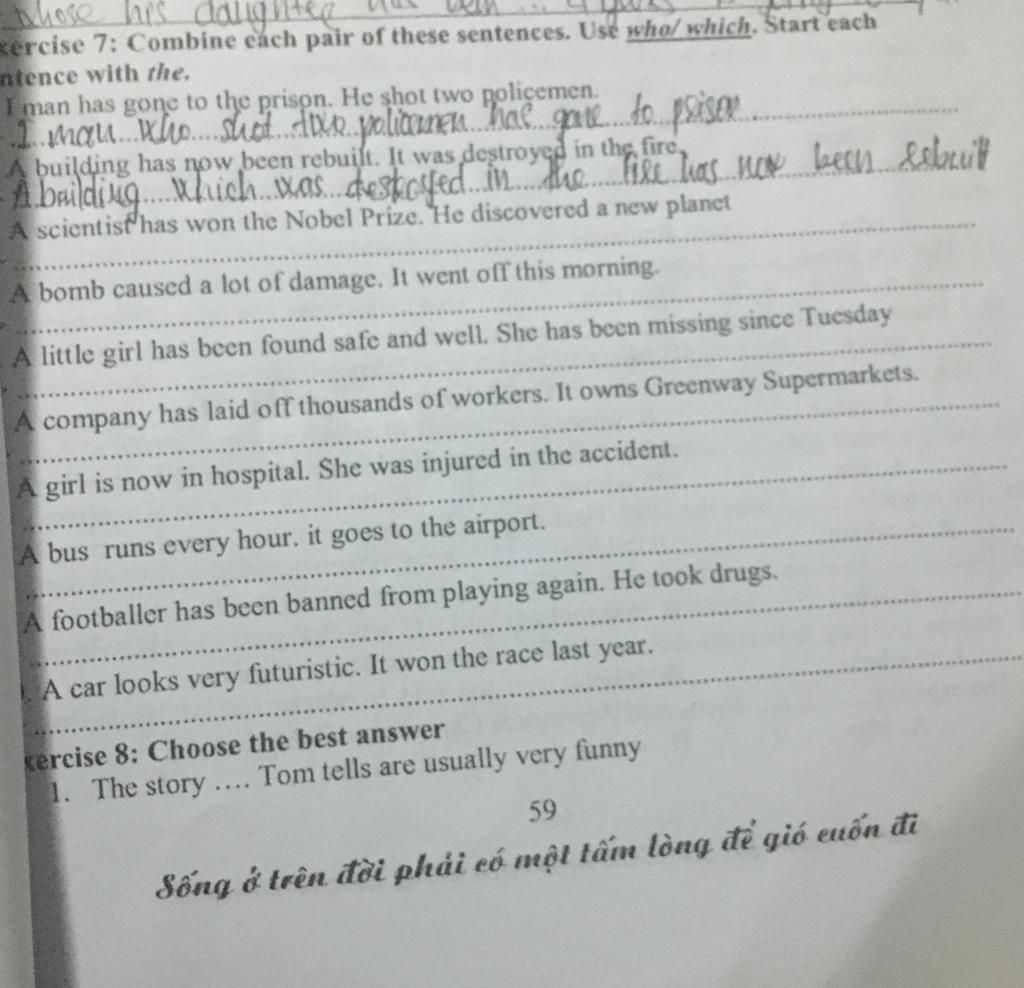 whose his daughter has been
ercise 7: Combine each pair of these sentences. Use who/ which. Start each
ntence with the.
I man has gone to the prison. He shot two policemen.
I man who shot two policemen has gone to prison
A building has now been rebuilt. It was destroyed in the fire.
A building which was destroyed in the fire has now been rebuilt
A scientist has won the Nobel Prize. He discovered a new planet
A bomb caused a lot of damage. It went off this morning.
A little girl has been found safe and well. She has been missing since Tuesday
A company has laid off thousands of workers. It owns Greenway Supermarkets.
A girl is now in hospital. She was injured in the accident.
A bus runs every hour. it goes to the airport.
A footballer has been banned from playing again. He took drugs.
. A car looks very futuristic. It won the race last year.
ercise 8: Choose the best answer
1. The story .... Tom tells are usually very funny
59
Sống ở trên đời phải có một tấm lòng để gió cuốn đi